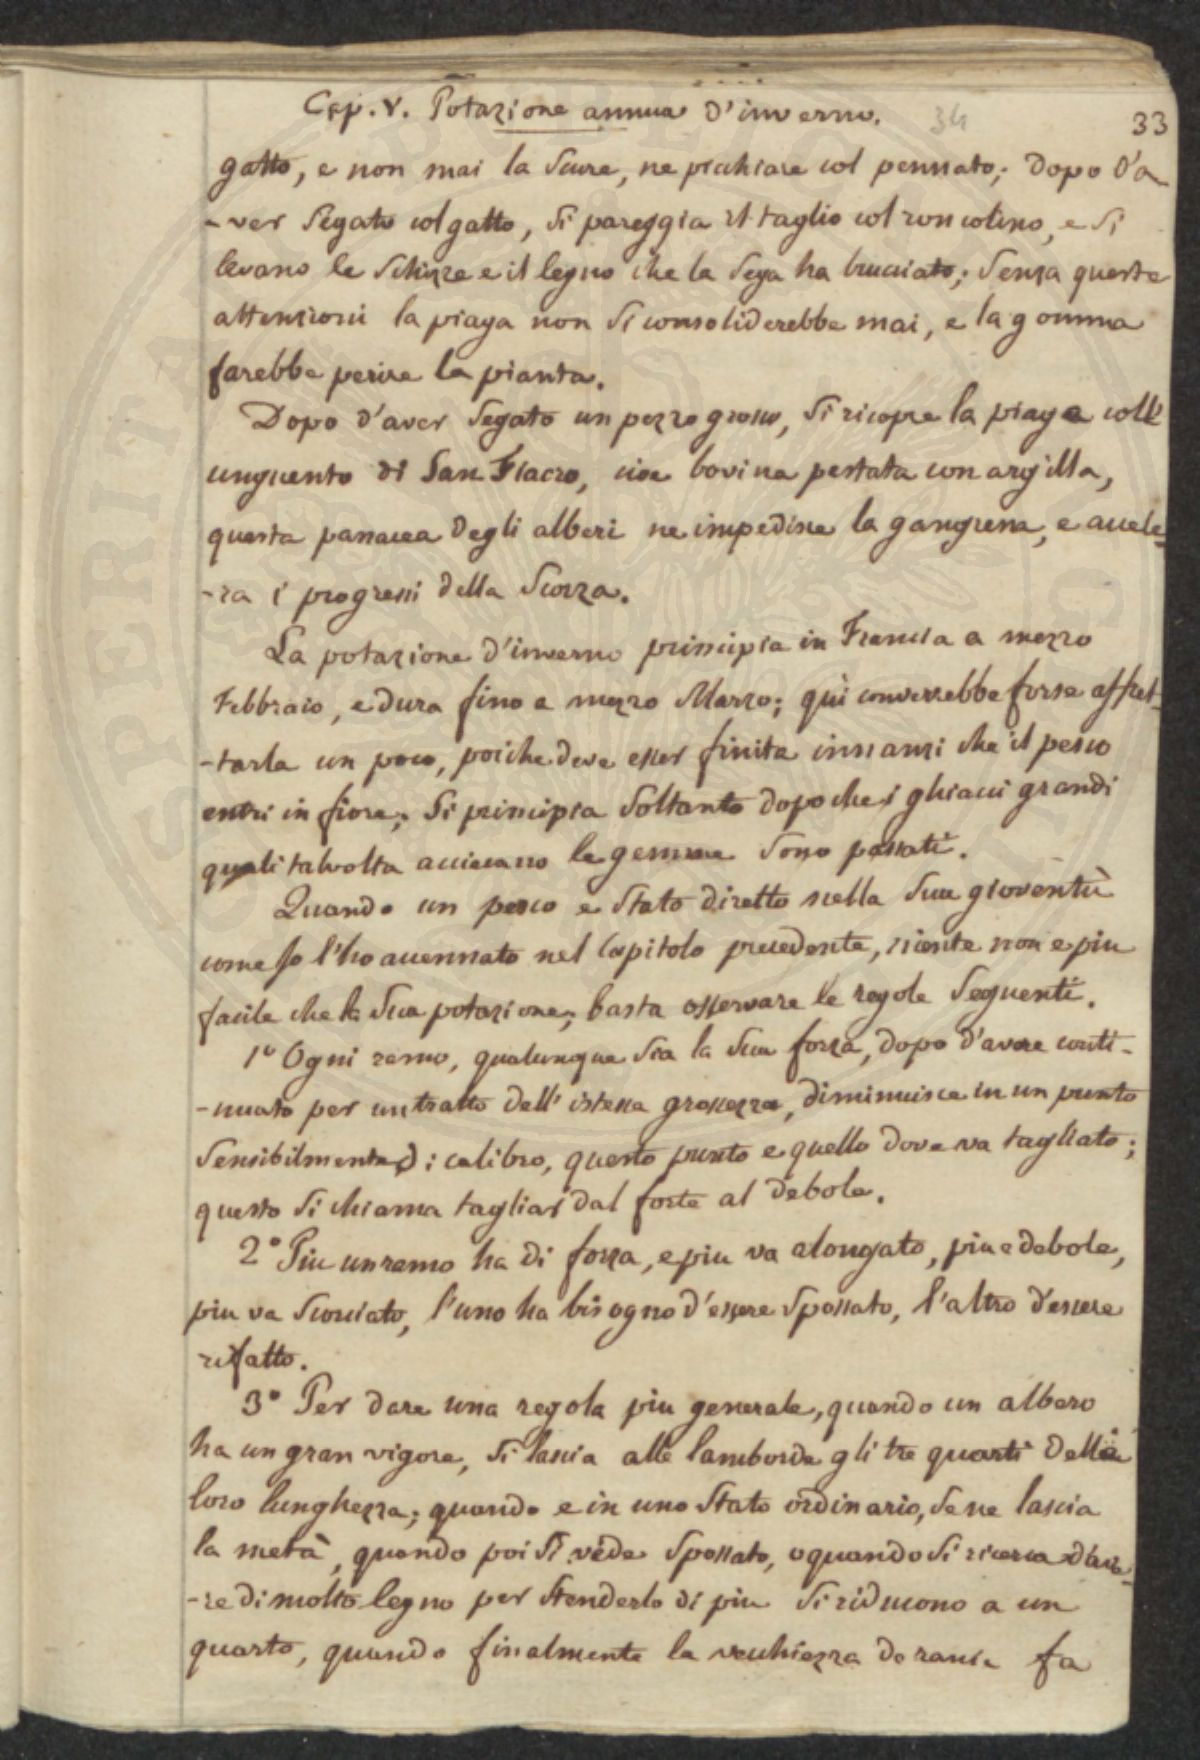 Cap. V. Potazione annua d'inverno. 34 33
gatto, e non mai la scure, ne picchiare col pennato; dopo d'a
-ver segato col gatto, si pareggia il taglio col roncolino, e si
levano le schizze e il legno che la sega ha bruciato; senza queste
attenzioni la piaga non si consoliderebbe mai, e la gomma
farebbe perire la pianta.
Dopo d'aver segato un pezzo grosso, si ricopre la piaga coll'
unguento di San Fiacro, cioe bovina pestata con argilla,
questa panacea degli alberi ne impedisce la gangrena, e accele-
-ra i progressi della scorza.
La potazione d'inverno principia in Francia a mezzo
Febbraio, e dura fino a mezzo Marzo; quì converrebbe forse affret-
-tarla un poco, poiche deve esser finita innanzi che il pesco
entri in fiore; si principia soltanto dopo che i ghiacci grandi
quali talvolta acciecano le gemme sono passati.
Quando un pesco e stato diretto nella sua gioventù
come Io l'ho accennato nel Capitolo precedente, niente non e piu
facile che la sua potazione; basta osservare le regole seguenti.
1º Ogni ramo, qualunque sia la sua forza, dopo d'avere conti-
-nuato per un tratto dell' istessa grossezza, diminuisce in un punto
sensibilmente di calibro, questo punto e quello dove va tagliato;
questo si chiama tagliar dal forte al debole.
2º Piu un ramo ha di forza, e piu va alongato, piu e debole,
piu va scorciato, l'uno ha bisogno d'essere spossato, l'altro d'essere
rifatto.
3º Per dare una regola piu generale, quando un albero
ha un gran vigore, si lascia alle lamborde gli tre quarti della
loro lunghezza; quando e in uno stato ordinario, se ne lascia
la metà, quando poi si vede spossato, o quando si ricerca d'ave-
-re di molto legno per stenderlo di piu si riducono a un
quarto, quando finalmente la vecchiezza de rami fa